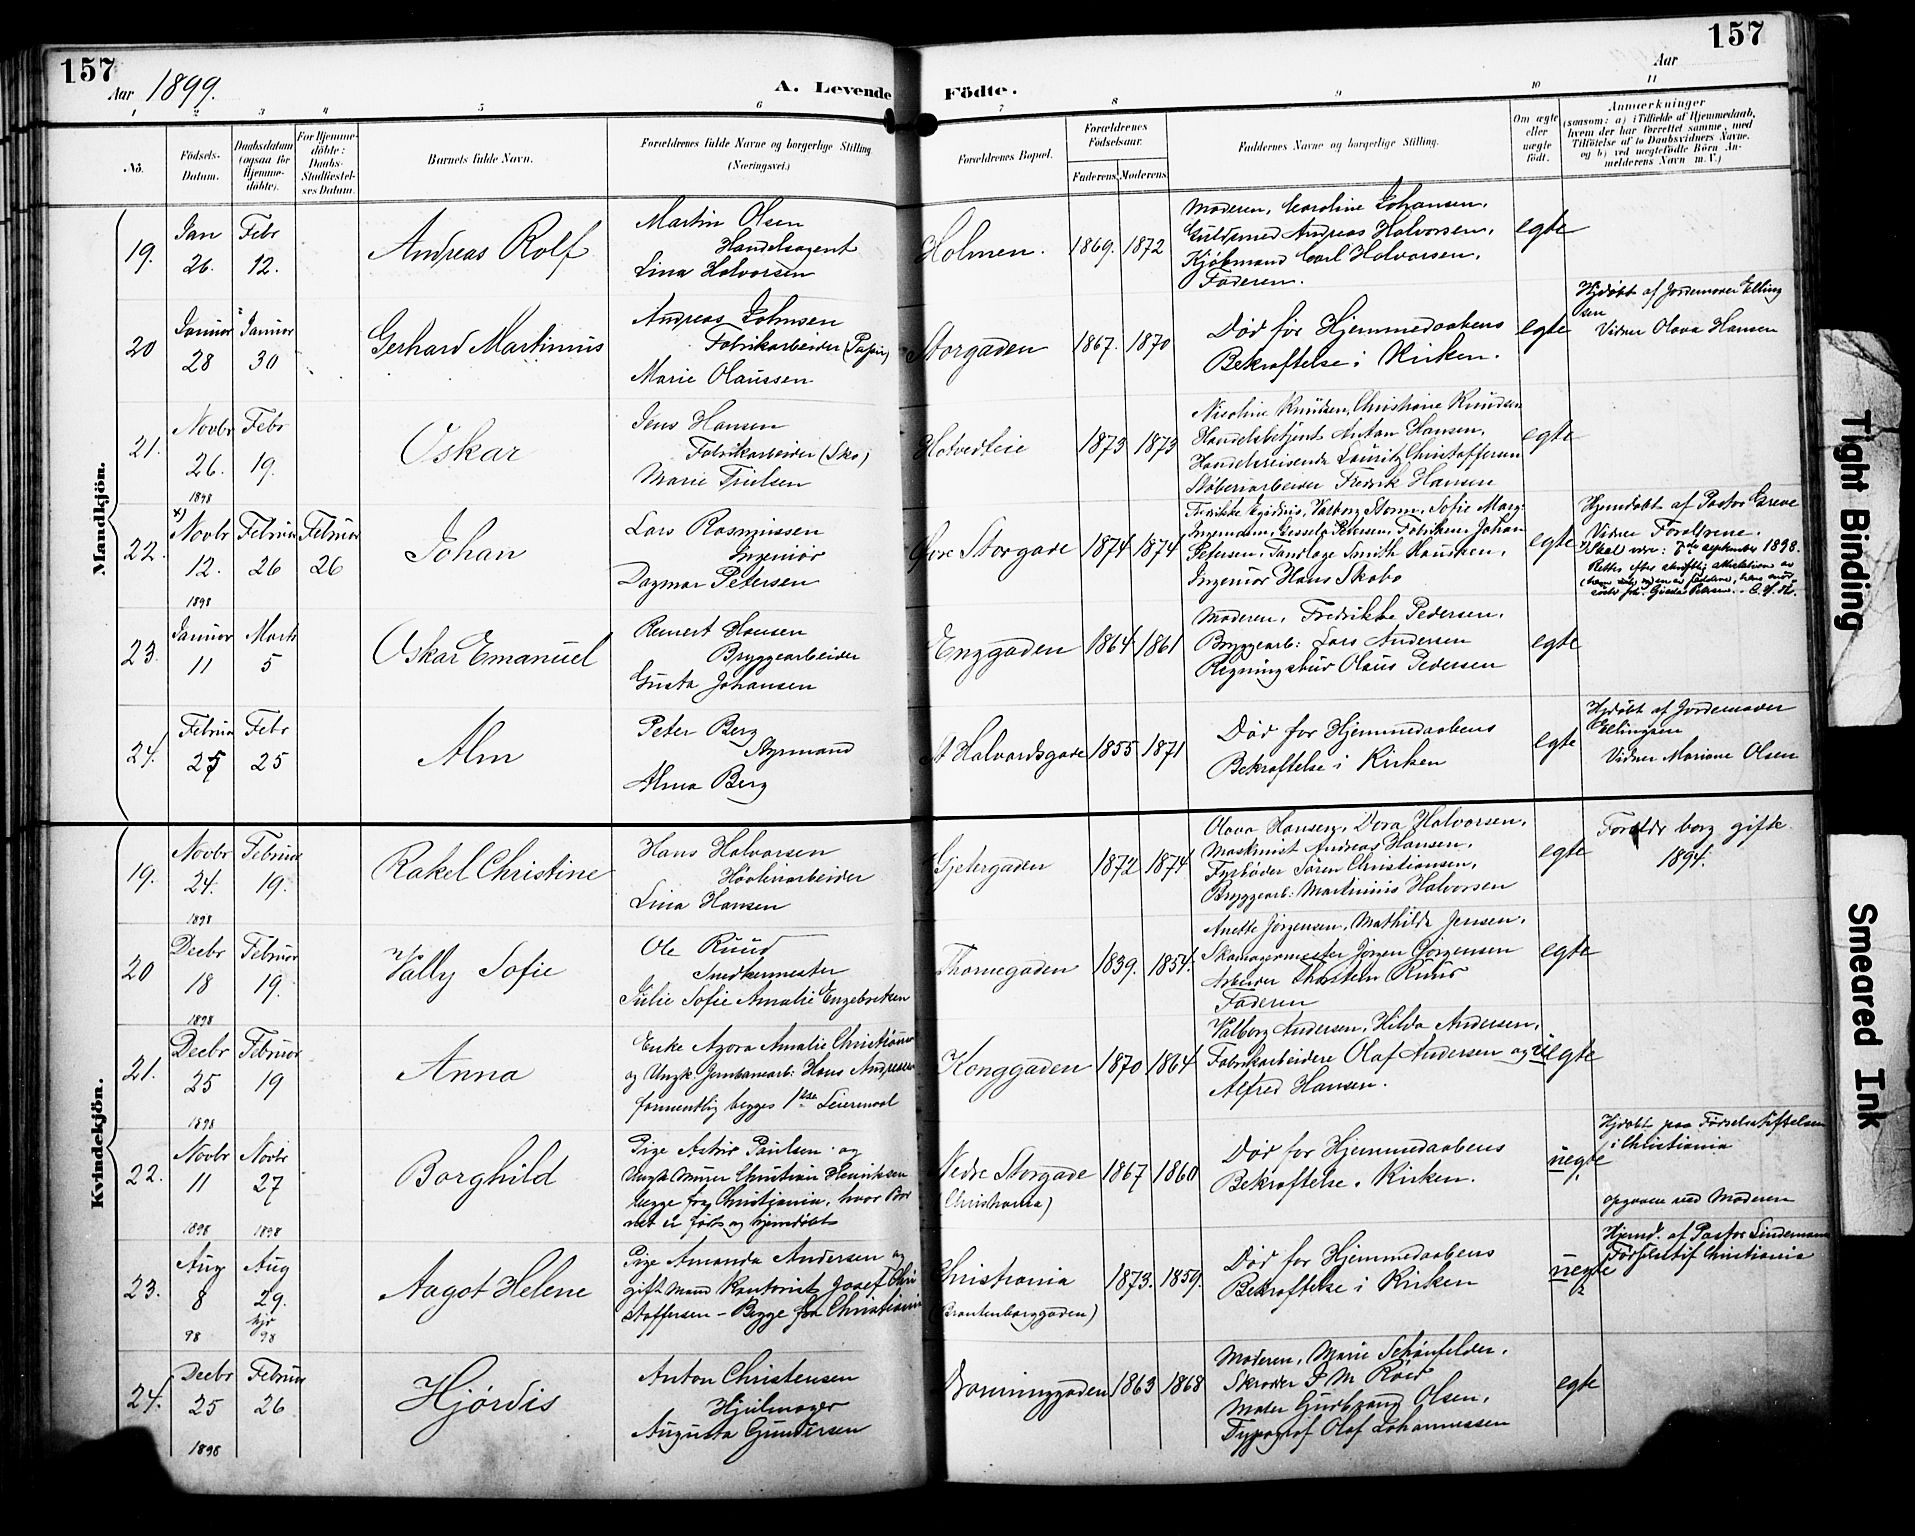 157
157
Aar 1899.
A. Levende Födte.
Aar
1 2 3 4 5 6 7 8 9 10 11
No.
Födsels-Datum.
Daabsdatum (ogsaa för Hjemme-döbte).
For Hjemme-döbte: Daabs-Stadfæstel-ses Datum.
Barnets fulde Navn.
Forældrenes fulde Navne og borgerlige Stilling (Næringsvei.)
Forældrenes Bopæl.
Forældrenes Födselsaar.
Faderens Moderens
Faddernes Navne og borgerlige Stilling.
Om ægte eller uægte födt.
Anmærkninger
(saasom: a) i Tilfælde af Hjemmedaab, hvem der har forrettet samme, med Tilföielse af to Daabsvidners Navne, og b) ved uægtefödte Börn An-melderens Navn m. V.)
Mandkjön.
19. Jan 26. Febr 12. Andreas Rolf
Martin Olsen
Handelsagent
Lina Halvorsen
Holmen. 1869. 1872
Moderen, Caroline Johansen,
Guldsmed Andreas Halvorsen,
Kjøbmand Carl Halvorsen,
Faderen.
egte
20 Januar 28 Januar 30 Gerhard Martinius
Andreas Johnsen
Fabrikarbeider (Papir)
Marie Olaussen
Storgaden 1867. 1870
Død før Hjemmedaabens
Bekræftelse i Kirken.
egte
Hjdøbt af Jordemoder Elling
sen
Vidner Olava Hansen
21. Novbr 26. 1898 Febr 19. Oskar
Jens Hansen
Fabrikarbeider (Sko)
Marie Trulsen
Hotvedteie 1873 1873
Nicoline Knudsen, Christiane Knudsen
Handelsbetjent Anton Hansen,
Handelsreisende Lauritz Christoffersen
Støberiarbeider Fredrik Hansen
egte
22. x) Novbr 12. 1898 Februar 26 Februar 26 Johan
Lars Rasmussen
Ingeniør
Dagmar Petersen
Øvre Storgade 1874 1874
Fredrikke Egidius, Valborg Storm, Sofie Marg.
Petersen, Tandlæge Smith Hansken,
Ingeniør Hans Skabo
egte
Hjemdøbt af Pastor Greve
Vidner Forældrene.
x) Skal være: 7de september 1898.
Rettet efter skriftlig attestation av
23. Januar 11 Marts 5 Oskar Emanuel
Reinert Hansen
Bryggearbeider
Gusta Johansen
Enggaden 1864 1861
Moderen, Fredrikke Pedersen,
Bryggearb: Lars Andersen
Rigningsbud Olaus Pedersen
egte
24. Februar 25 Febr 25 Alm
Peter Berg
Styrmand
Alma Berg
St Halvardsgade 1855 1871
Død før Hjemmedaabens
Bekræftelse i Kirken
egte
Hjdøbt af Jordemoder
Ellingsen
Vidner Mariane Olsen
Kvindekjön.
19. Novbr 24. 1898 Februar 19. Rakel Christine
Hans Halvorsen
Høvleriarbeider
Lina Hansen
Gjetergaden 1872 1874
Olava Hansen, Dora Halvorsen,
Maskinist Andreas Hansen,
Fyrbøder Søren Christiansen,
Bryggearb: Martinius Halvorsen
egte
Forældr borg gifte
1894.
20 Decbr 18 1898 Februar 19. Vally Sofie
Ole Ruud
Snedkermester
Julie Sofie Amalie Engebretsen
Thornegaden 1839. 1854.
Anette Jørgensen, Mathilde Jensen,
Skomagermester Jørgen Jørgensen
Arbeider Thorstein Ruud
Faderen
egte
21. Decbr 25 1898 Februar 19 Anna
Enke Azora Amalie Christianse
og Ungk Jernbanearb: Hans Andresen
formentlig begges 1ste Leiermaal
Konggaden 1870 1864
Valborg Andersen, Hilda Andersen,
Fabrikarbeidere Olaf Andersen og
Alfred Hansen.
uegte
22. Novbr 11 1898 Novbr 27 1898 Borghild
Pige Astrid Paulsen og
Ungk Murer Christian Henriksen
begge fra Christiania, hvor Bar
net er født og hjemdøbt
Nedre Storgade 1867 1860
(Christiania)
Død før Hjemmedaabens
Bekræftelse i Kirken.
uegte
Hjdøbt paa Fødselsstiftelsen
i Christiania
opgaven ved Moderen
23. Aug 8 98 Aug 29. hjd 98 Aagot Helene
Pige Amanda Andersen og
gift Mand Kontorist Josef Chri
stoffersen - Begge fra Christiania
Christiania 1873. 1859.
(Brantenborggaden)
Død før Hjemmedaabens
Bekræftelse i Kirken
uegte
Hjemd. af Pastor Lindemann
Fødselsstif Christiania
24. Decbr 25 1898 Februar 26 Hjørdis
Anton Christensen
Hjulmager
Augusta Gundersen
Dronninggaden 1863 1868
Moderen, Marie Schønfelder,
Skræder I M Røed
Maler Gudbrand Olsen,
Typograf Olaf Johannessen
egte
Tight Binding
Smeared Ink